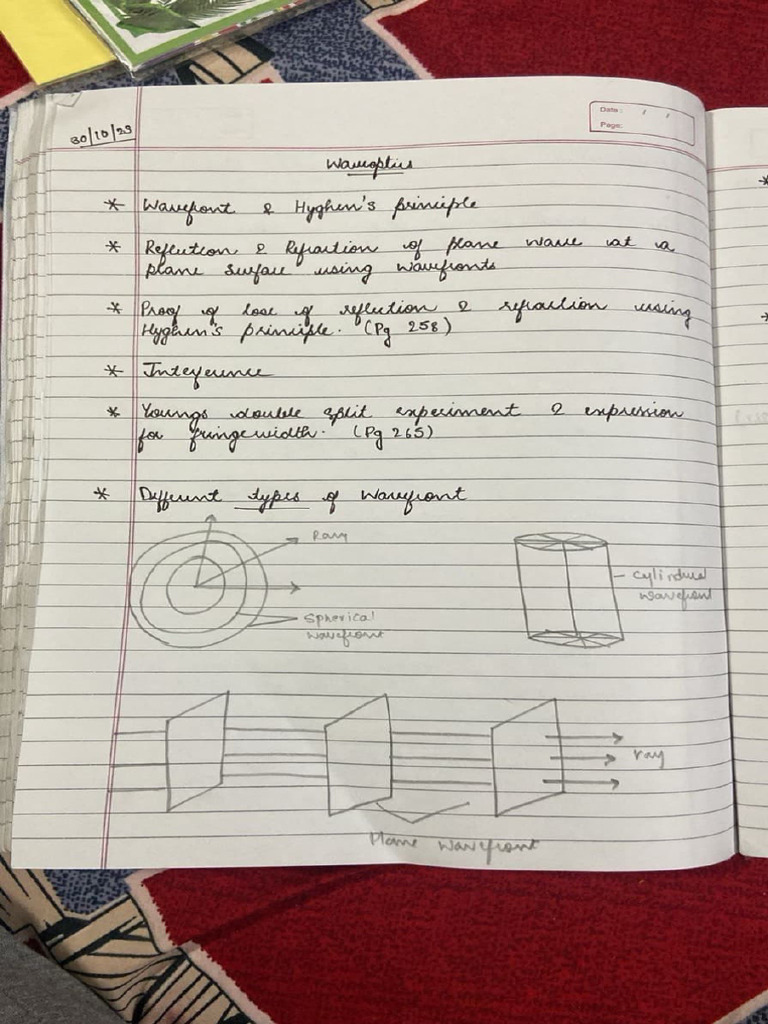 30/10/23
Date :
Page:
Waveoptics
* Wavefront & Hyghen's principle
* Reflection & Refraction of plane wave at a
plane surface using wavefronts
* Proof of lose of reflection & refraction using
Hyghen's principle. (Pg 258)
* Inteference
* Youngs double split experiment & expression
for fringewidth. (Pg 265)
* Different types of Wavefront
Ray
Spherical
wavefront
Cylindrical
wavefront
ray
Plane wavefront